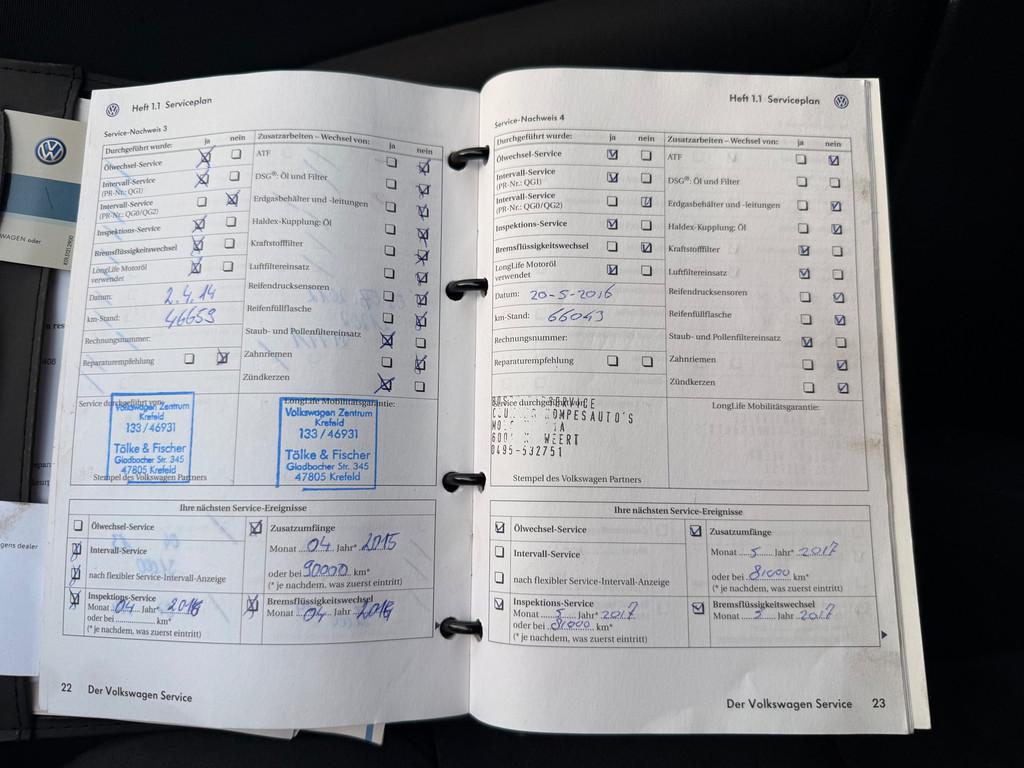 Heft 1.1 Serviceplan
Service-Nachweis 3
Durchgeführt wurde: ja nein
Ölwechsel-Service
Intervall-Service
(PR-Nr.: QG1)
Intervall-Service
(PR-Nr.: QG0/QG2)
Inspektions-Service
Bremsflüssigkeitswechsel
LongLife Motoröl
verwendet
Datum: 2.4.14
km-Stand: 46653
Rechnungsnummer:
Reparaturempfehlung
Zusatzarbeiten – Wechsel von: ja nein
ATF
DSG®: Öl und Filter
Erdgasbehälter und -leitungen
Haldex-Kupplung: Öl
Kraftstofffilter
Luftfiltereinsatz
Reifendrucksensoren
Reifenfüllflasche
Staub- und Pollenfiltereinsatz
Zahnriemen
Zündkerzen
Service durchgeführt von:
Volkswagen Zentrum
Krefeld
133/46931
Tölke & Fischer
Gladbacher Str. 345
47805 Krefeld
Stempel des Volkswagen Partners
LongLife Mobilitätsgarantie:
Volkswagen Zentrum
Krefeld
133/46931
Tölke & Fischer
Gladbacher Str. 345
47805 Krefeld
Ihre nächsten Service-Ereignisse
Ölwechsel-Service
Intervall-Service
nach flexibler Service-Intervall-Anzeige
Inspektions-Service
Monat 04 Jahr* 2016
oder bei km*
(* je nachdem, was zuerst eintritt)
Zusatzumfänge
Monat 04 Jahr* 2015
oder bei 90000 km*
(* je nachdem, was zuerst eintritt)
Bremsflüssigkeitswechsel
Monat 04 Jahr 2016
22 Der Volkswagen Service
Heft 1.1 Serviceplan
Service-Nachweis 4
Durchgeführt wurde: ja nein
Ölwechsel-Service
Intervall-Service
(PR-Nr.: QG1)
Intervall-Service
(PR-Nr.: QG0/QG2)
Inspektions-Service
Bremsflüssigkeitswechsel
LongLife Motoröl
verwendet
Datum: 20-5-2016
km-Stand: 66043
Rechnungsnummer:
Reparaturempfehlung
Zusatzarbeiten – Wechsel von: ja nein
ATF
DSG®: Öl und Filter
Erdgasbehälter und -leitungen
Haldex-Kupplung: Öl
Kraftstofffilter
Luftfiltereinsatz
Reifendrucksensoren
Reifenfüllflasche
Staub- und Pollenfiltereinsatz
Zahnriemen
Zündkerzen
Service durchgeführt von:
SERVICE
KOMPESAUTO'S
WEERT
0495-532751
Stempel des Volkswagen Partners
LongLife Mobilitätsgarantie:
Ihre nächsten Service-Ereignisse
Ölwechsel-Service
Intervall-Service
nach flexibler Service-Intervall-Anzeige
Inspektions-Service
Monat 5 Jahr* 2017
oder bei 81000 km*
(* je nachdem, was zuerst eintritt)
Zusatzumfänge
Monat 5 Jahr* 2017
oder bei 81000 km*
(* je nachdem, was zuerst eintritt)
Bremsflüssigkeitswechsel
Monat 5 Jahr 2017
Der Volkswagen Service 23
WAGEN oder
gens dealer